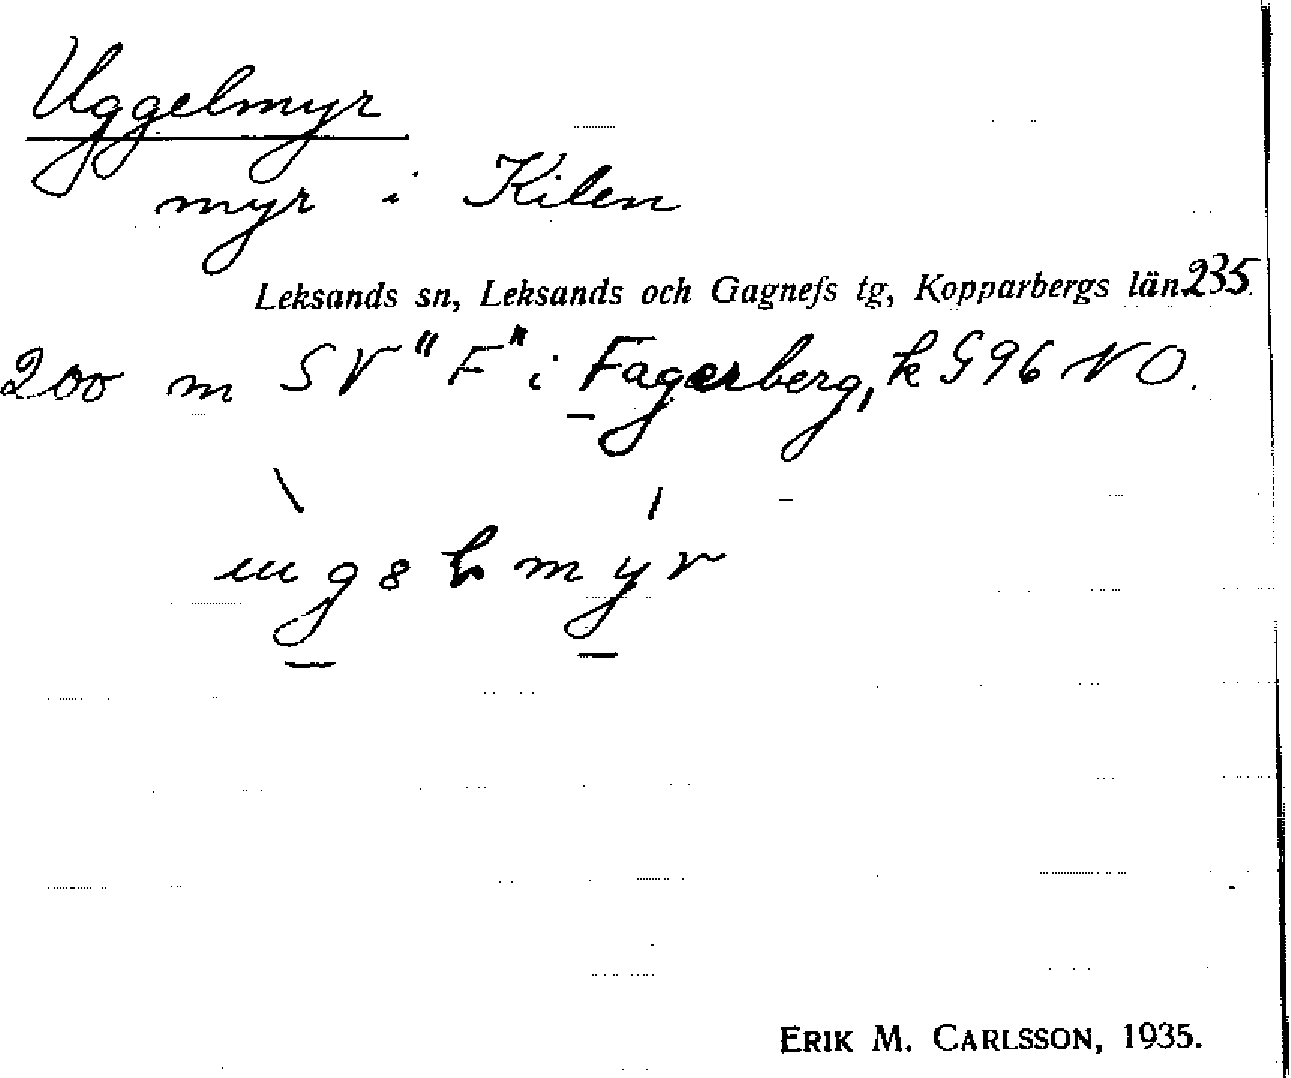 Uggelmyr
myr i Kilen
Leksands sn, Leksands och Gagnefs tg, Kopparbergs län 235.
200 m SV "F" i Fagerberg, k G96 NO.
Erik M. Carlsson, 1935.